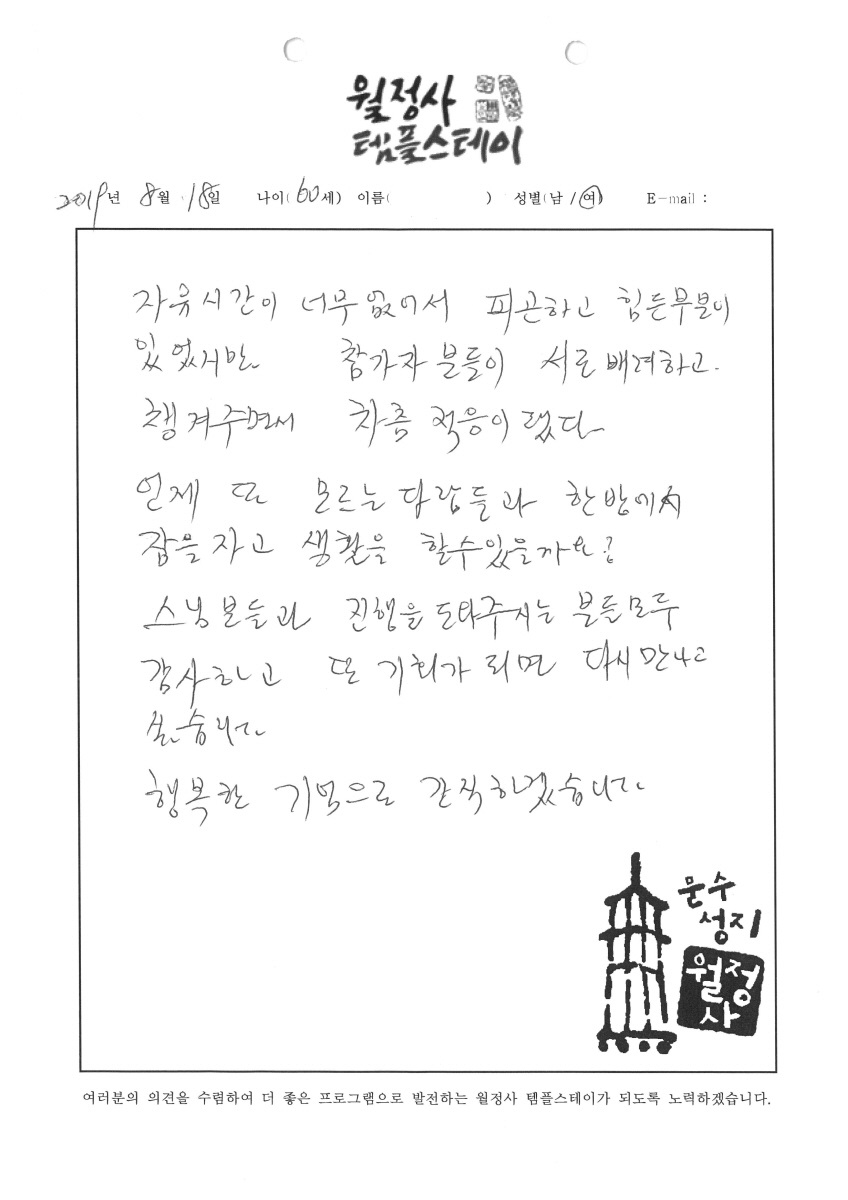 월정사
템플스테이
2019년 8월 18일 나이(60세) 이름( ) 성별(남 / 여) E-mail :
자유시간이 너무 없어서 피곤하고 힘든부분이
있었지만. 참가자 분들이 서로 배려하고.
챙겨주면서 차츰 적응이 됐다.
언제 또 모르는 사람들과 한방에서
잠을 자고 생활을 할수있을까요?
스님 분들과 진행을 도와주시는 분들 모두
감사하고 또 기회가 되면 다시 만나고
싶습니다.
행복한 기억으로 간직하겠습니다.
문수
성지
월정
사
여러분의 의견을 수렴하여 더 좋은 프로그램으로 발전하는 월정사 템플스테이가 되도록 노력하겠습니다.